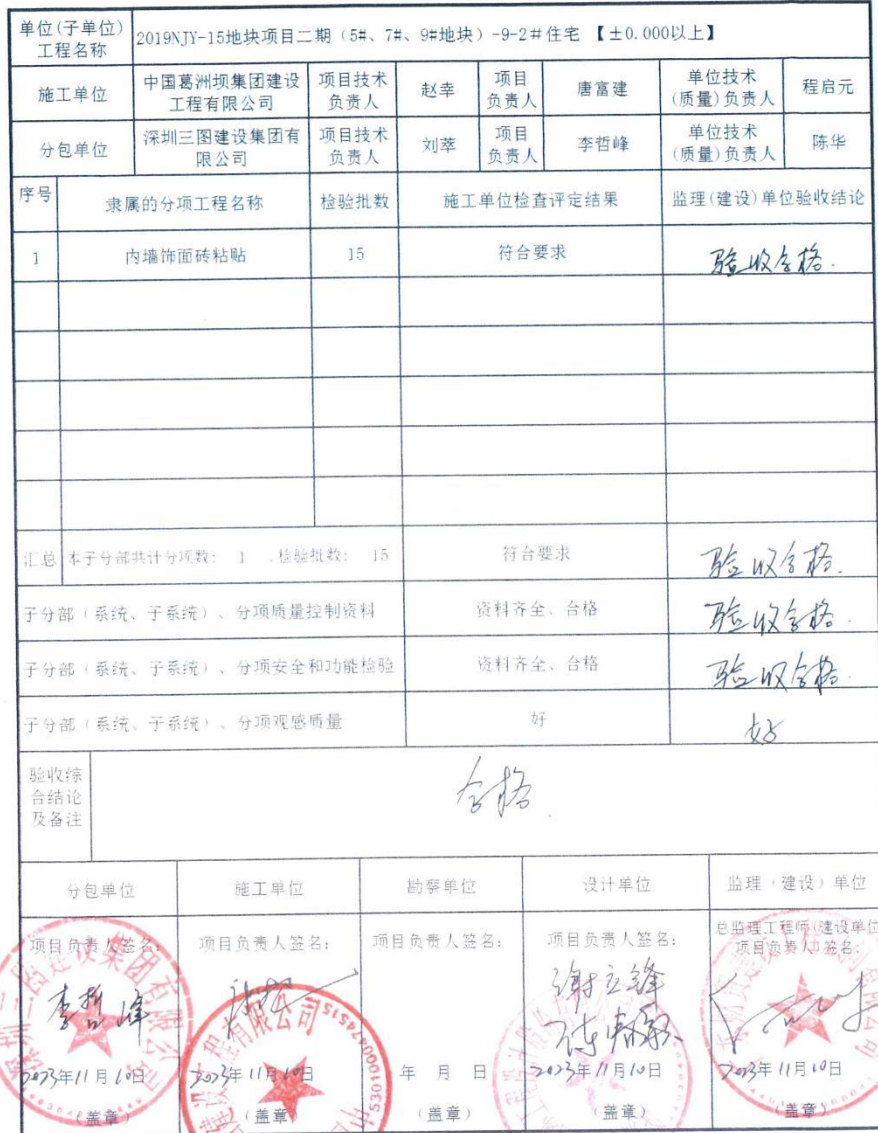 单位(子单位)
工程名称
2019NJY-15地块项目二期（5#、7#、9#地块）-9-2#住宅 【±0.000以上】
施工单位
中国葛洲坝集团建设
工程有限公司
项目技术
负责人
赵幸
项目
负责人
唐富建
单位技术
(质量)负责人
程启元
分包单位
深圳三图建设集团有
限公司
项目技术
负责人
刘萃
项目
负责人
李哲峰
单位技术
(质量)负责人
陈华
序号
隶属的分项工程名称
检验批数
施工单位检查评定结果
监理(建设)单位验收结论
1
内墙饰面砖粘贴
15
符合要求
验收合格.
汇总
本子分部共计分项数： 1 ,检验批数： 15
符合要求
验收合格.
子分部（系统、子系统）、分项质量控制资料
资料齐全、合格
验收合格.
子分部（系统、子系统）、分项安全和功能检验
资料齐全、合格
验收合格.
子分部（系统、子系统）、分项观感质量
好
好
验收综
合结论
及备注
合格.
分包单位
施工单位
勘察单位
设计单位
监理（建设）单位
项目负责人签名：
李哲峰
2023年11月10日
（盖章）
深圳三图建设集团有限公司
项目负责人签名：
2023年11月10日
（盖章）
建设工程有限公司
项目负责人签名：
年 月 日
（盖章）
项目负责人签名：
谢立锋
2023年11月10日
（盖章）
总监理工程师(建设单位
项目负责人)签名：
2023年11月10日
（盖章）